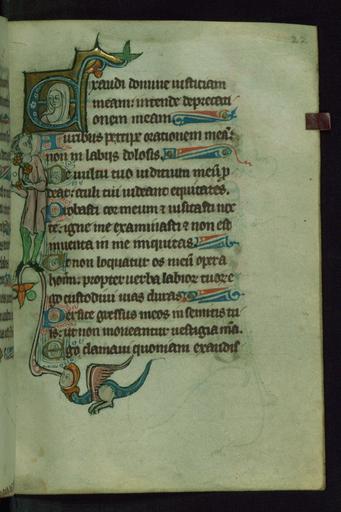 22
Exaudi domine iusticiam
meam: intende deprecati
onem meam
Auribus percipe orationem meā:
non in labiis dolosis.
De uultu tuo iudicium meū ꝓ
deat: oculi tui uideant equitates.
Probasti cor meum ⁊ uisitasti noc
te: igne me examinasti ⁊ non est
inuenta in me iniquitas.
Ut non loquatur os meū opera
hoīm: propter uerba labioꝝ tuoꝝ e
go custodiui uias duras.
Perfice gressus meos in semitis tu
is: ut non moueantur uestigia m̄a.
Ego clamaui quoniam exaudis